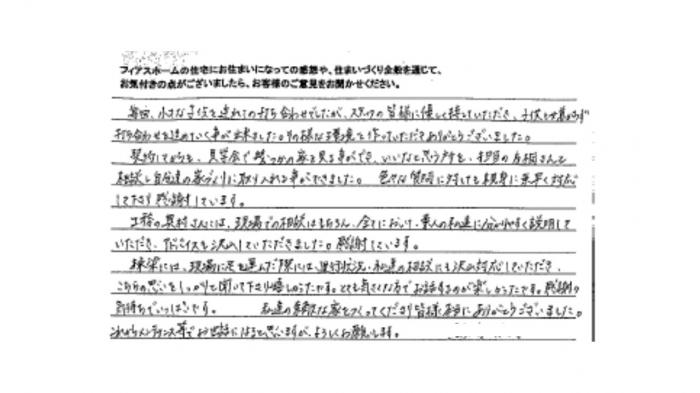 フィアスホームの住宅にお住まいになっての感想や、住まいづくり全般を通じて、
お気付きの点がございましたら、お客様のご意見をお聞かせください。
毎回、小さな子供を連れての打ち合わせでしたが、スタッフの皆様に優しく接していただき、子供も
打ち合わせを進めていく事が出来ました。その様な環境を作っていただきありがとうございました。
契約してからも、見学会で幾つかの家を見る事ができ、いいなと思う所を、担当の さんと
相談し自分達の家づくりに取り入れる事ができました。色々な質問に対しても親身に素早く対応
して下さり感謝しています。
工務の奥村さんには、現場での相談はもちろん、全てにおいて、素人の私達に分かりやすく説明して
いただき、アドバイスも沢山していただきました。感謝しています。
棟梁には、現場に足を運んだ際には、進行状況・私達の相談にも沢山対応していただき、
こちらの思いをしっかりと聞いて下さり嬉しかったです。とても気さくな方でお話するのが楽しかったです。感謝の
気持ちでいっぱいです。 私達の素敵な家をつくってくださり皆様本当にありがとうございました。
これからメンテナンス等でお世話になると思いますが、よろしくお願いします。